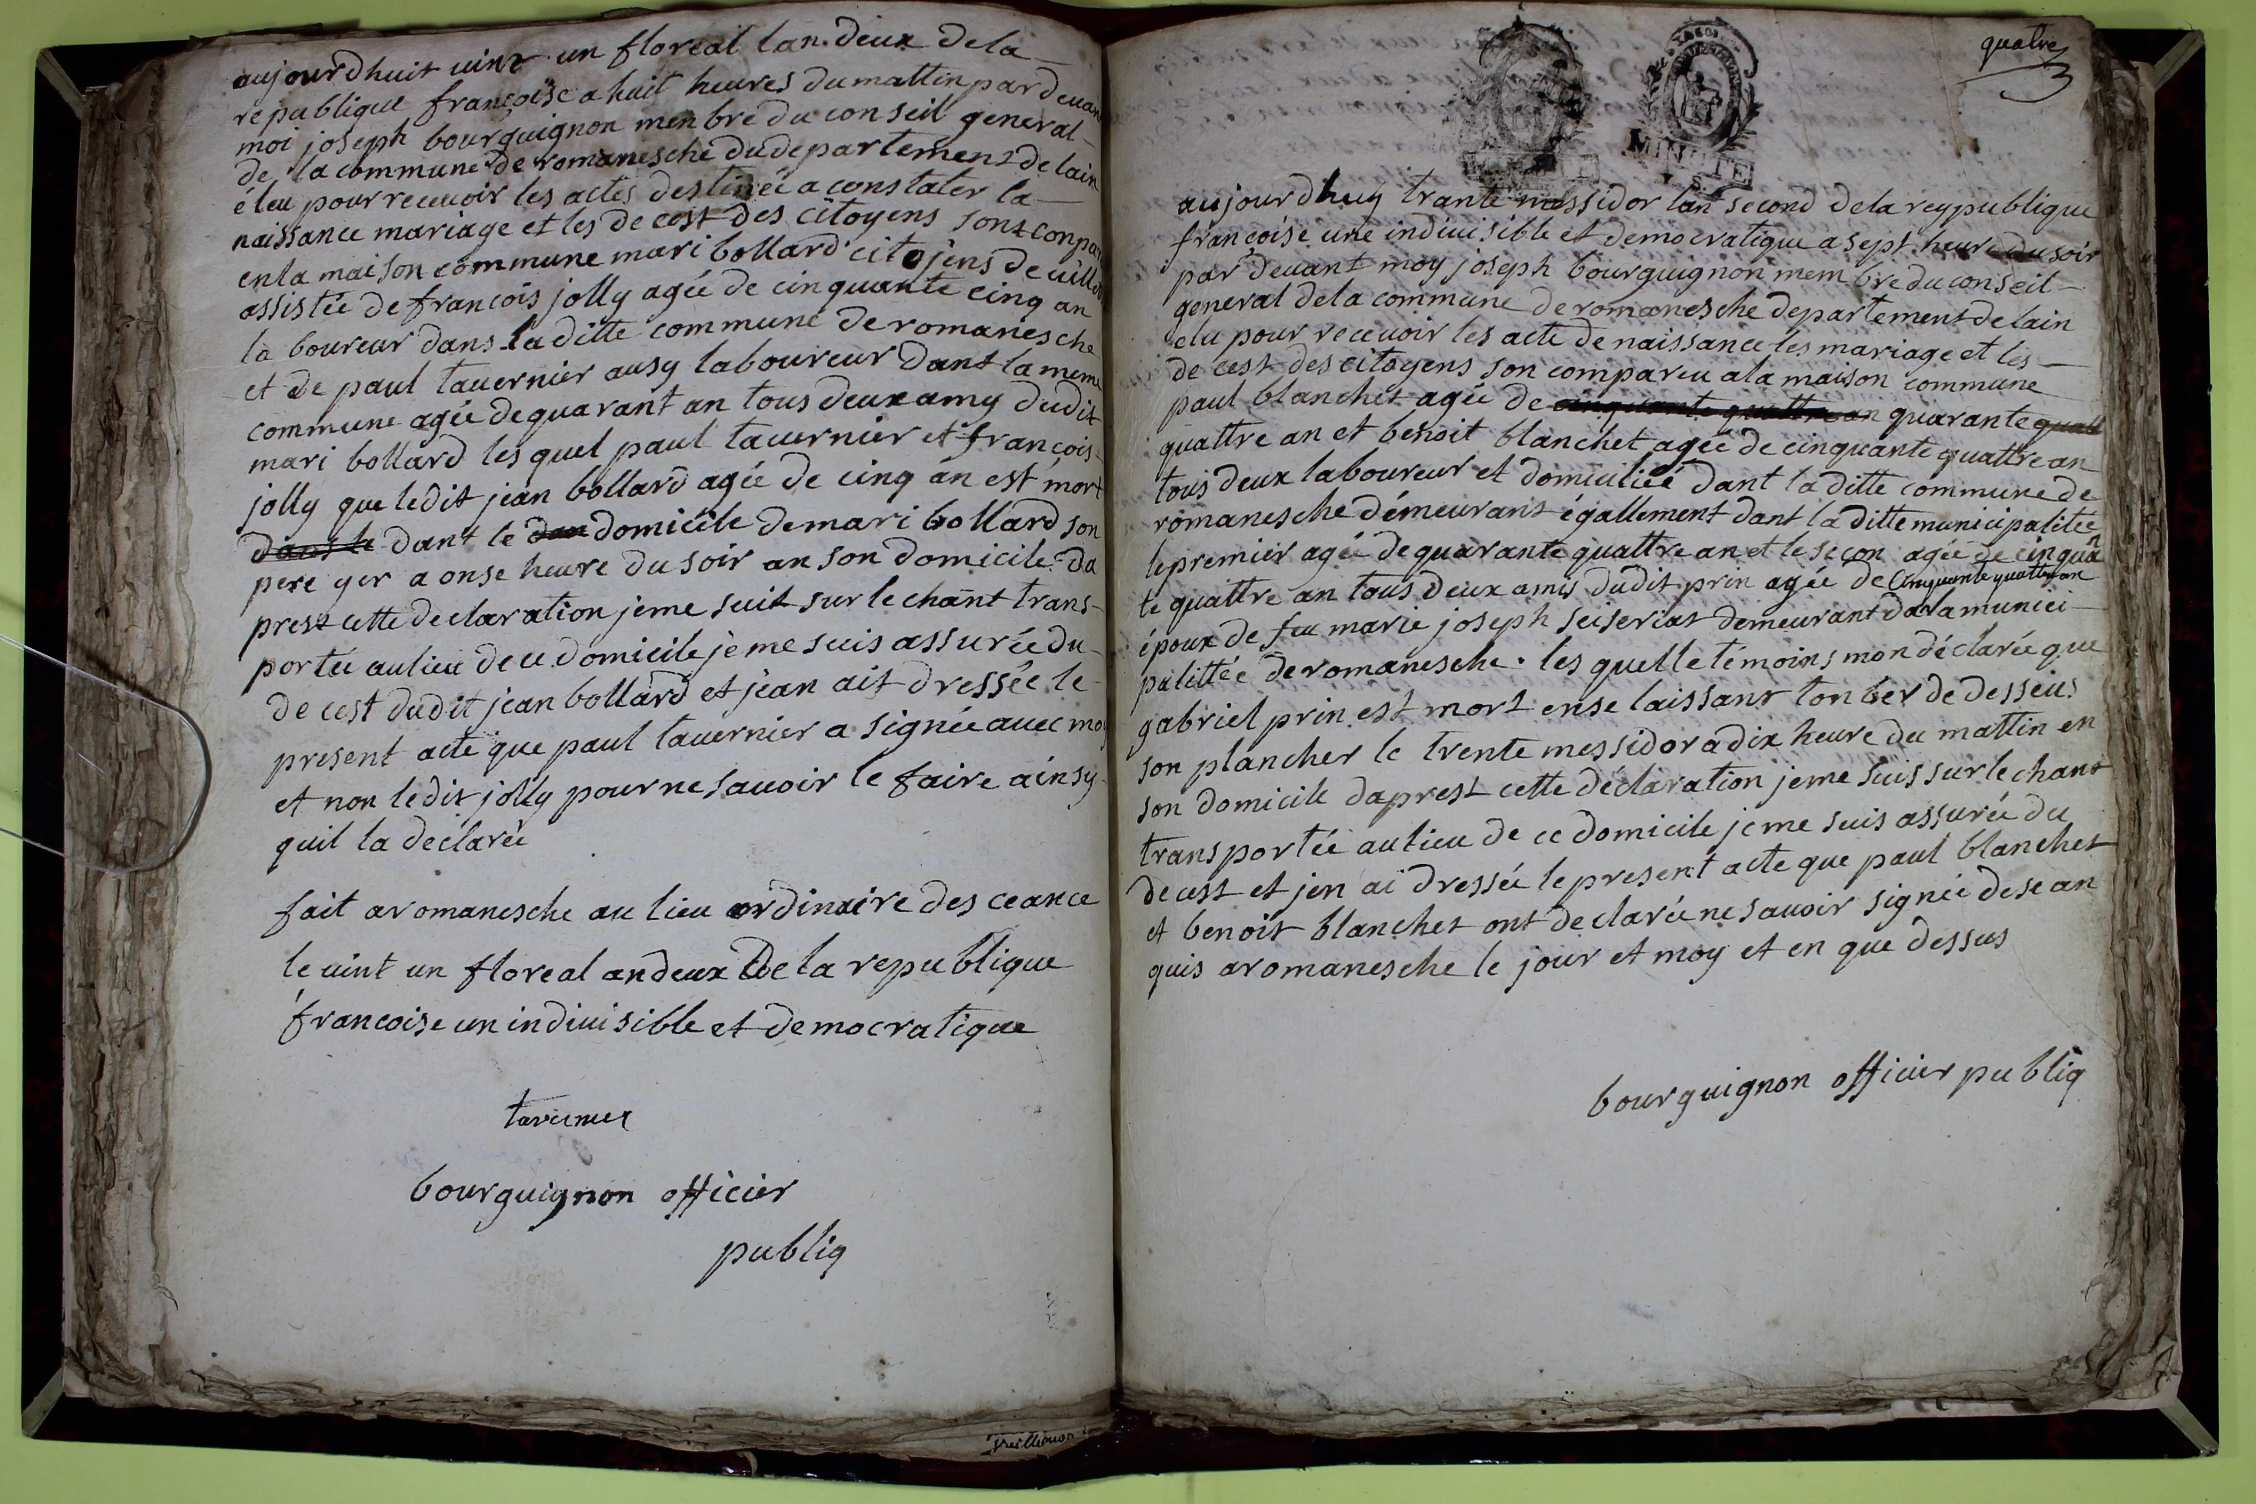 aujourdhuit vint un floreal lan deux dela
republique françoise a huit heures dumattin pardevan
moi joseph bourguignon menbre du conseil general
de la commune de romanesche dudepartement delain
éleu pour recevoir les actes destinée a constater la
naissance mariage et les de cest des citoyens sont conpar
enla maison commune mari bollard citojens de
assistée de francois jolly agée de cinquante cinq an
la boureur dans la ditte commune de romanesche
et de paul tavernier ausy laboureur dant la meme
commune agée dequarant an tous deux amy dudit
mari bollard lesquel paul tavernier et françois
jolly que ledit jean bollard agée de cinq an est mort
dans le dant le dan domicile demari bollard son
pere yer a onse heure du soir an son domicile da
prest cette declaration jeme suit sur le chant trans
portée aulieu dece domicile jeme suis assurée du
de cest dudit jean bollard et jean ait dressée le
present acte que paul tavernier a signée avec moy
et non ledit jolly pour ne savoir le faire ainsy
quil la déclarée
fait aromanesche au lieu ordinaire des ceance
le vint un floreal andeux de la republique
francoise un indivisible et democratique
tavernier
bourguignon officier
publiq
quatre
MINUTE
aujourdhuy trante messidor lan second dela reypublique
françoise une indivisible et democratique a sept heure du soir
par devant moy joseph bourguignon membre du conseil
general dela commune de romanesche departement delain
elu pour recevoir les acte de naissance les mariage et les
de cest des citoyens son compareu ala maison commune
paul blanchet agée de cinquante quattre an quarante quatt
quattre an et benoit blanchet agée de cinquante quattre an
tous deux laboureur et domiciliée dant la ditte commune de
romanesche démeurant égallement dant la ditte municipalitée
lepremier agée dequarante quattre an et le secon agée de cinquan
te quattre an tous deux amis dudit prin agée de cinquante quattre an
époux de feu marie joseph seiseriat demeurant dala munici
palittée deromanesche. les quelle témoins mon déclarée que
gabriel prin est mort ense laissant tonber de desseus
son plancher le trente messidor a dix heure du mattin en
son domicile daprest cette déclaration jeme suis sur le chant
transportée aulieu de ce domicile jeme suis assurée du
decest et jen ai dressée le present acte que paul blanchet
et benoit blanchet ont declarée ne savoir signée dese an
quis aromanesche le jour et moy et en que dessus
bourguignon officier publiq